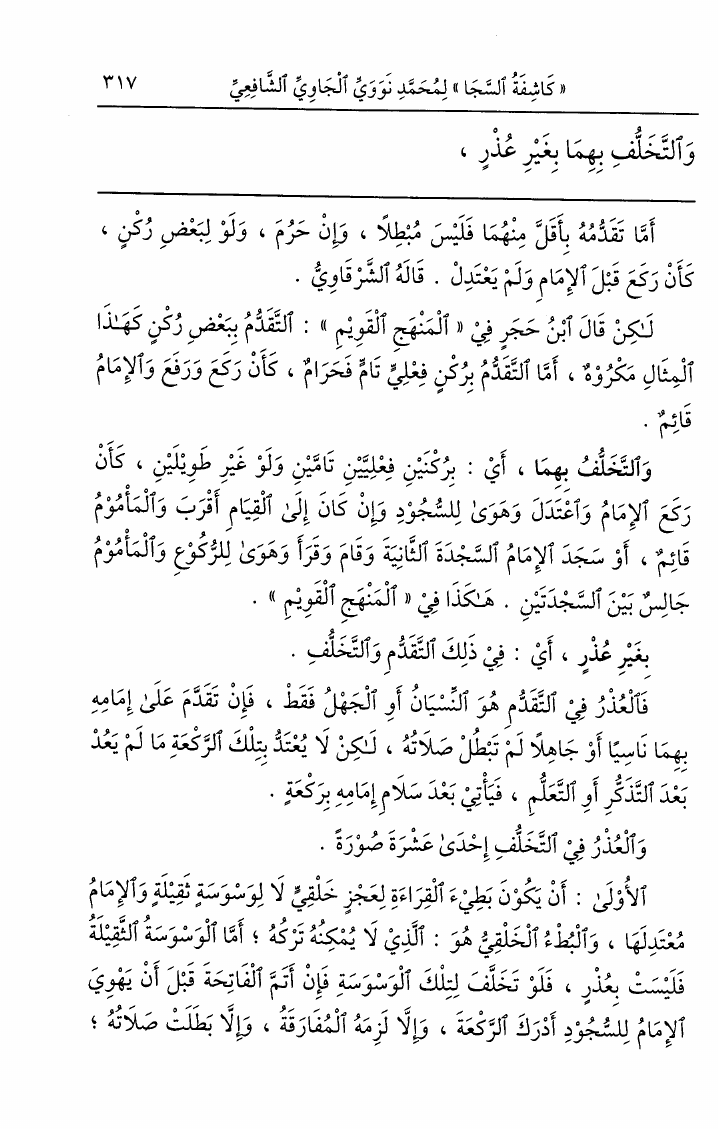 « كَاشِفَةُ ٱلسَّجَا » لِمُحَمَّدِ نَوَوِيِّ ٱلْجَاوِيِّ ٱلشَّافِعِيِّ ٣١٧
وَٱلتَّخَلُّفِ بِهِمَا بِغَيْرِ عُذْرٍ ،
أَمَّا تَقَدُّمُهُ بِأَقَلَّ مِنْهُمَا فَلَيْسَ مُبْطِلًا ، وَإِنْ حَرُمَ ، وَلَوْ لِبَعْضِ رُكْنٍ ،
كَأَنْ رَكَعَ قَبْلَ ٱلإِمَامِ وَلَمْ يَعْتَدِلْ . قَالَهُ ٱلشَّرْقَاوِيُّ .
لَـٰكِنْ قَالَ ٱبْنُ حَجَرٍ فِيْ « ٱلْمَنْهَجِ ٱلْقَوِيْمِ » : ٱلتَّقَدُّمُ بِبَعْضِ رُكْنٍ كَهَـٰذَا
ٱلْمِثَالِ مَكْرُوْهٌ ، أَمَّا ٱلتَّقَدُّمُ بِرُكْنٍ فِعْلِيٍّ تَامٍّ فَحَرَامٌ ، كَأَنْ رَكَعَ وَرَفَعَ وَٱلإِمَامُ
قَائِمٌ .
وَٱلتَّخَلُّفُ بِهِمَا ، أَيْ : بِرُكْنَيْنِ فِعْلِيَّيْنِ تَامَّيْنِ وَلَوْ غَيْرِ طَوِيْلَيْنِ ، كَأَنْ
رَكَعَ ٱلإِمَامُ وَٱعْتَدَلَ وَهَوَىٰ لِلسُّجُوْدِ وَإِنْ كَانَ إِلَىٰ ٱلْقِيَامِ أَقْرَبَ وَٱلْمَأْمُوْمُ
قَائِمٌ ، أَوْ سَجَدَ ٱلإِمَامُ ٱلسَّجْدَةَ ٱلثَّانِيَةَ وَقَامَ وَقَرَأَ وَهَوَىٰ لِلرُّكُوْعِ وَٱلْمَأْمُوْمُ
جَالِسٌ بَيْنَ ٱلسَّجْدَتَيْنِ . هَـٰكَذَا فِيْ « ٱلْمَنْهَجِ ٱلْقَوِيْمِ » .
بِغَيْرِ عُذْرٍ ، أَيْ : فِيْ ذَلِكَ ٱلتَّقَدُّمِ وَٱلتَّخَلُّفِ .
فَٱلْعُذْرُ فِيْ ٱلتَّقَدُّمِ هُوَ ٱلنِّسْيَانُ أَوِ ٱلْجَهْلُ فَقَطْ ، فَإِنْ تَقَدَّمَ عَلَىٰ إِمَامِهِ
بِهِمَا نَاسِيًا أَوْ جَاهِلًا لَمْ تَبْطُلْ صَلَاتُهُ ، لَـٰكِنْ لَا يُعْتَدُّ بِتِلْكَ ٱلرَّكْعَةِ مَا لَمْ يَعُدْ
بَعْدَ ٱلتَّذَكُّرِ أَوِ ٱلتَّعَلُّمِ ، فَيَأْتِيْ بَعْدَ سَلَامِ إِمَامِهِ بِرَكْعَةٍ .
وَٱلْعُذْرُ فِيْ ٱلتَّخَلُّفِ إِحْدَىٰ عَشْرَةَ صُوْرَةً .
ٱلأُوْلَىٰ : أَنْ يَكُوْنَ بَطِيْءَ ٱلْقِرَاءَةِ لِعَجْزٍ خَلْقِيٍّ لَا لِوَسْوَسَةٍ ثَقِيْلَةٍ وَٱلإِمَامُ
مُعْتَدِلَهَا ، وَٱلْبُطْءُ ٱلْخَلْقِيُّ هُوَ : ٱلَّذِيْ لَا يُمْكِنُهُ تَرْكُهُ ؛ أَمَّا ٱلْوَسْوَسَةُ ٱلثَّقِيْلَةُ
فَلَيْسَتْ بِعُذْرٍ ، فَلَوْ تَخَلَّفَ لِتِلْكَ ٱلْوَسْوَسَةِ فَإِنْ أَتَمَّ ٱلْفَاتِحَةَ قَبْلَ أَنْ يَهْوِيَ
ٱلإِمَامُ لِلسُّجُوْدِ أَدْرَكَ ٱلرَّكْعَةَ ، وَإِلَّا لَزِمَهُ ٱلْمُفَارَقَةُ ، وَإِلَّا بَطَلَتْ صَلَاتُهُ ؛